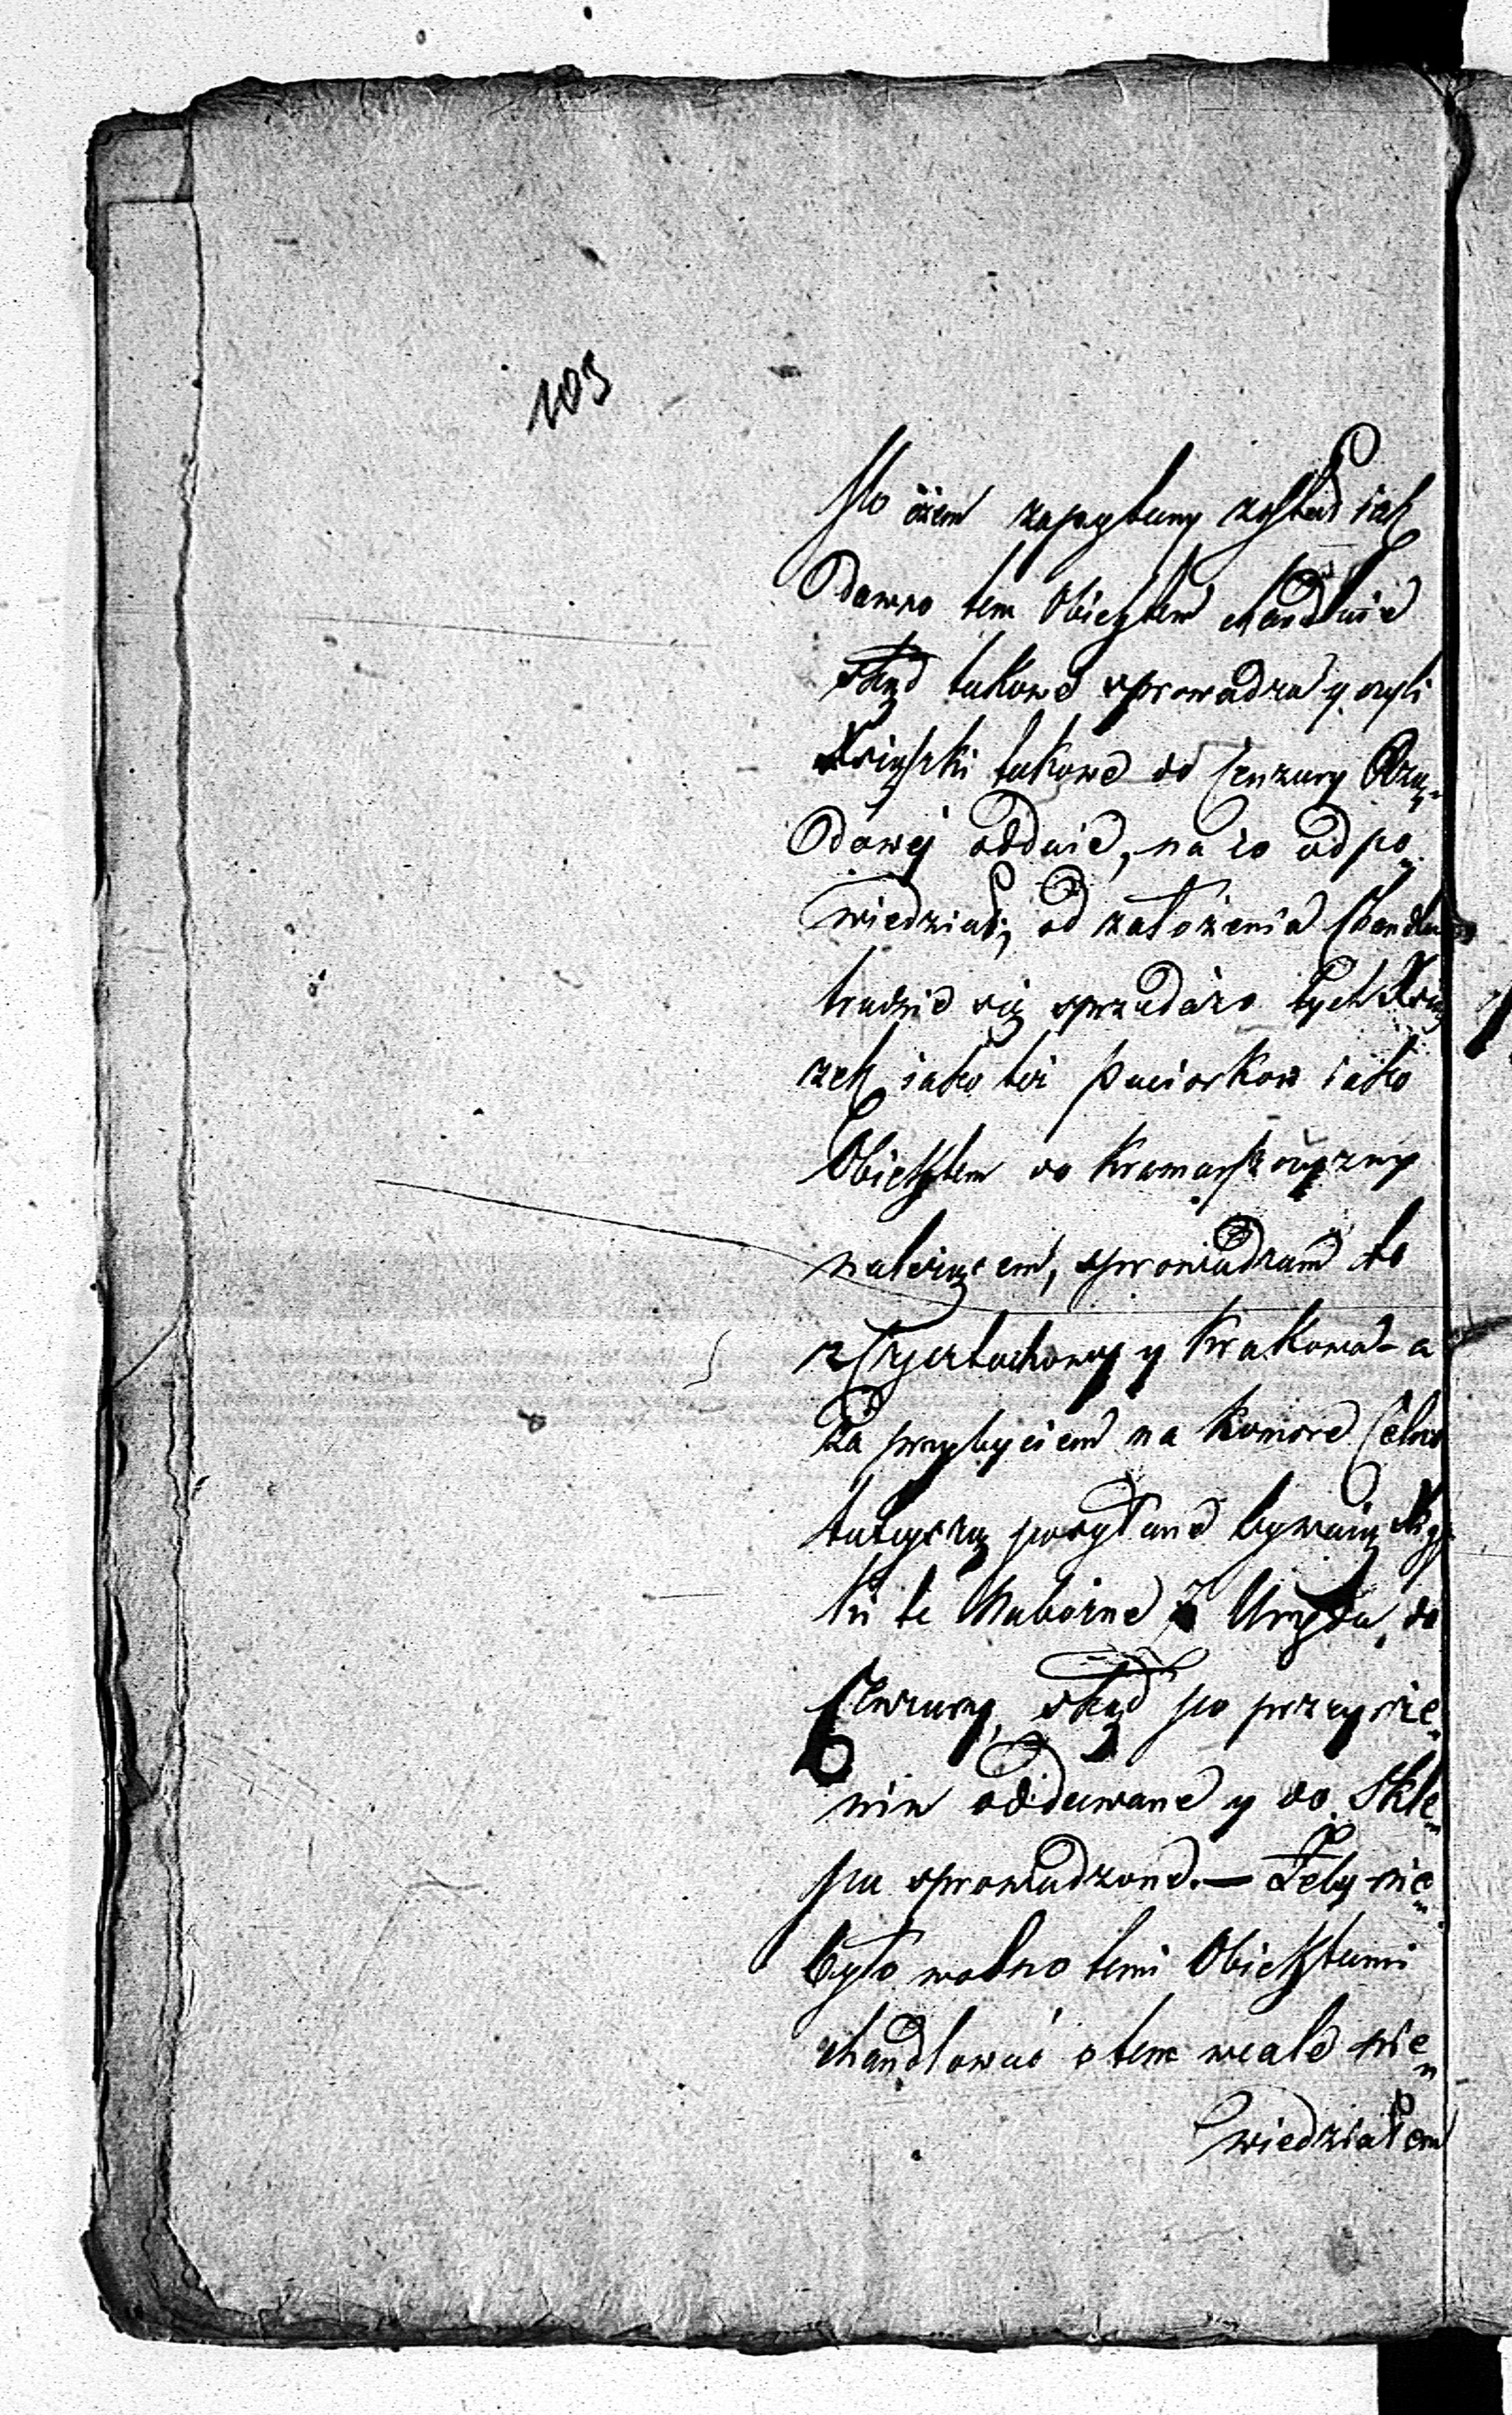 103
Po czem zapytany został iak
dawno tem Obiektem chandluie
skąd takowe sprowadza y czyli
Xsiąszki takowe do Cenzury Rzą„
dowej oddaie, na co odpo„
wiedział; od założenia Chandlu
trudnie się sprzedażo tych Xsią
zek iako też paciorkow iako
Obiektem do Kramarszczyzny
należącem, sprowadzam to
z Częstochowy y Krakowa – a
Za przybyciem na Komore Celno
tuteyszą posyłane bywaią Xsią
ki te Nabożne z Urzędu, do
Cenzury, skąd po przeyrze„
niu oddawane y do Skle„
pu sprowadzone. — Żeby nie„
było wolno temi Obiektami
chandlować o tem wcale nie„
wiedziałem